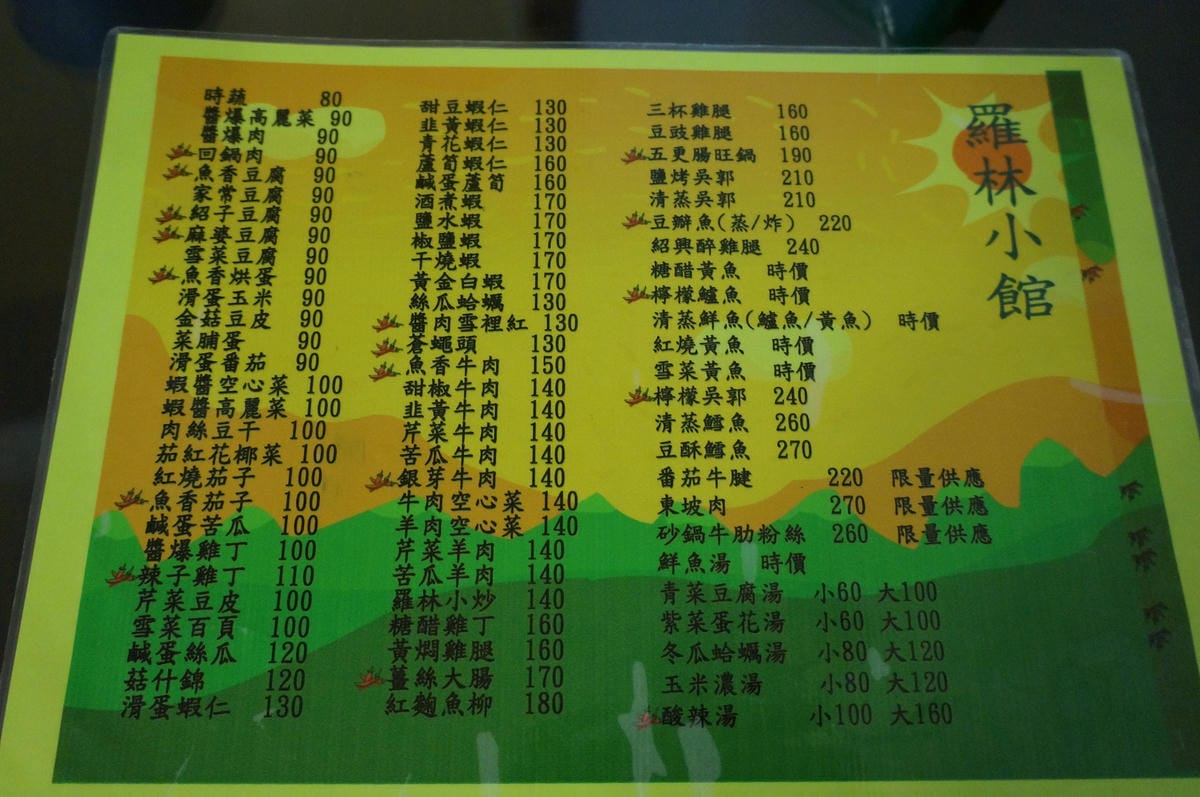 羅林小館
時蔬 80
醬爆高麗菜 90
醬爆肉 90
回鍋肉 90
魚香豆腐 90
家常豆腐 90
紹子豆腐 90
麻婆豆腐 90
雪菜豆腐 90
魚香烘蛋 90
滑蛋玉米 90
金菇豆皮 90
菜脯蛋 90
滑蛋番茄 90
蝦醬空心菜 100
蝦醬高麗菜 100
肉絲豆干 100
茄紅花椰菜 100
紅燒茄子 100
魚香茄子 100
鹹蛋苦瓜 100
醬爆雞丁 100
辣子雞丁 110
芹菜豆皮 100
雪菜百頁 100
鹹蛋絲瓜 120
菇什錦 120
滑蛋蝦仁 130
甜豆蝦仁 130
韭黃蝦仁 130
青花蝦仁 130
蘆筍蝦仁 160
鹹蛋蘆筍 160
酒煮蝦 170
鹽水蝦 170
椒鹽蝦 170
干燒蝦 170
黃金白蝦 170
絲瓜蛤蠣 130
醬肉雪裡紅 130
蒼蠅頭 130
魚香牛肉 150
甜椒牛肉 140
韭黃牛肉 140
芹菜牛肉 140
苦瓜牛肉 140
銀芽牛肉 140
牛肉空心菜 140
羊肉空心菜 140
芹菜羊肉 140
苦瓜羊肉 140
羅林小炒 140
糖醋雞丁 160
黃燜雞腿 160
薑絲大腸 170
紅麴魚柳 180
三杯雞腿 160
豆豉雞腿 160
五更腸旺鍋 190
鹽烤吳郭 210
清蒸吳郭 210
豆瓣魚(蒸/炸) 220
紹興醉雞腿 240
糖醋黃魚 時價
檸檬鱸魚 時價
清蒸鮮魚(鱸魚/黃魚) 時價
紅燒黃魚 時價
雪菜黃魚 時價
檸檬吳郭 240
清蒸鱈魚 260
豆酥鱈魚 270
番茄牛腱 220 限量供應
東坡肉 270 限量供應
砂鍋牛肋粉絲 260 限量供應
鮮魚湯 時價
青菜豆腐湯 小60 大100
紫菜蛋花湯 小60 大100
冬瓜蛤蠣湯 小80 大120
玉米濃湯 小80 大120
酸辣湯 小100 大160